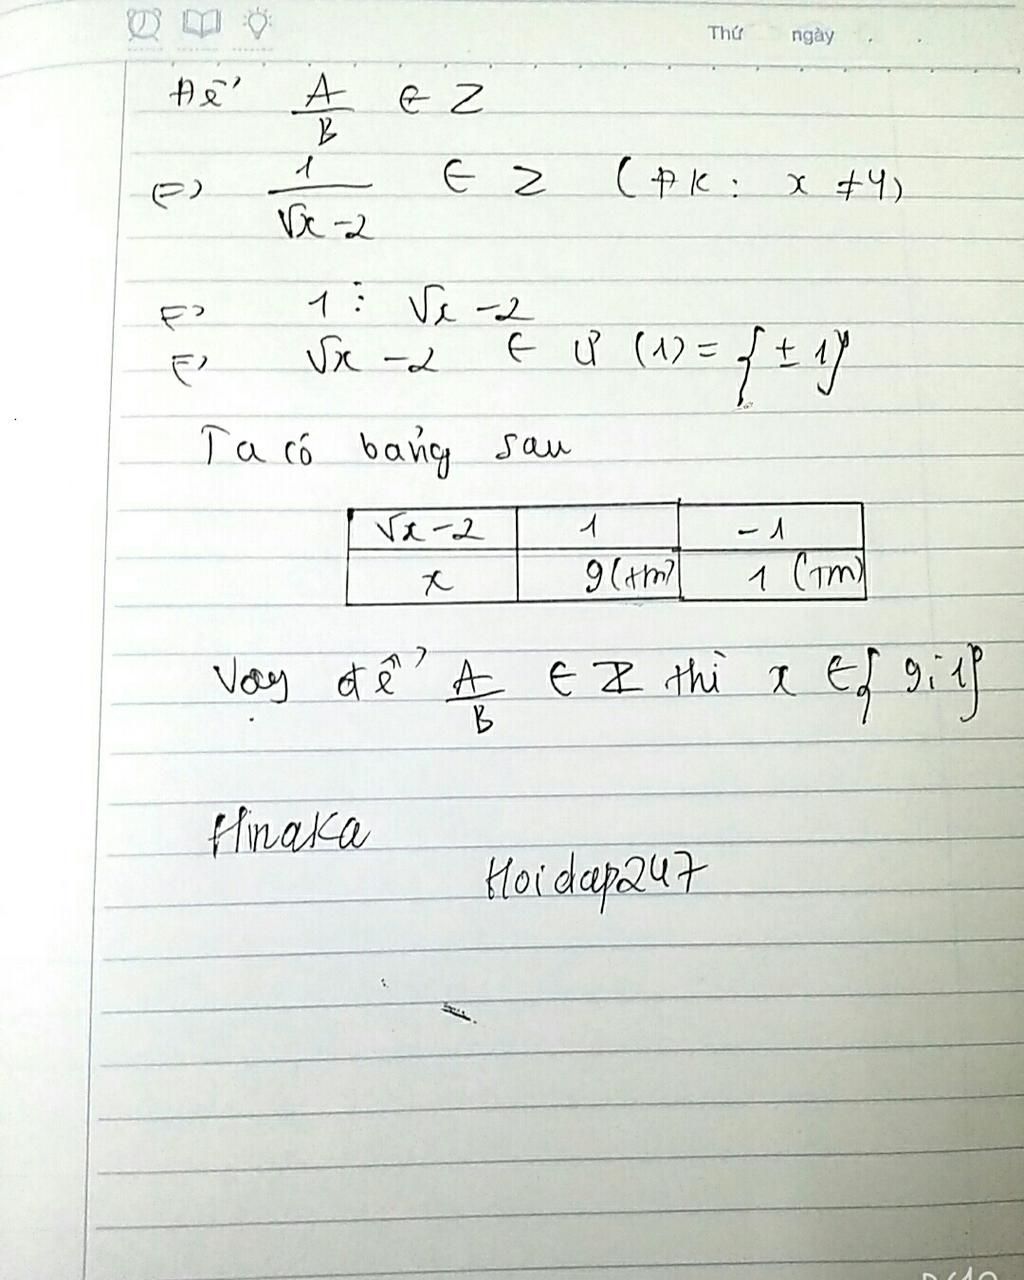 Thứ ngày . .
Để A/B ∈ Z
⇔ 1/(√x - 2) ∈ Z (ĐK: x ≠ 4)
⇔ 1 ⋮ √x - 2
⇔ √x - 2 ∈ Ư (1) = {± 1}
Ta có bảng sau
√x - 2 1 - 1
x 9 (tm) 1 (Tm)
Vậy để A/B ∈ Z thì x ∈ { 9; 1}
Hinaka
Hoidap247